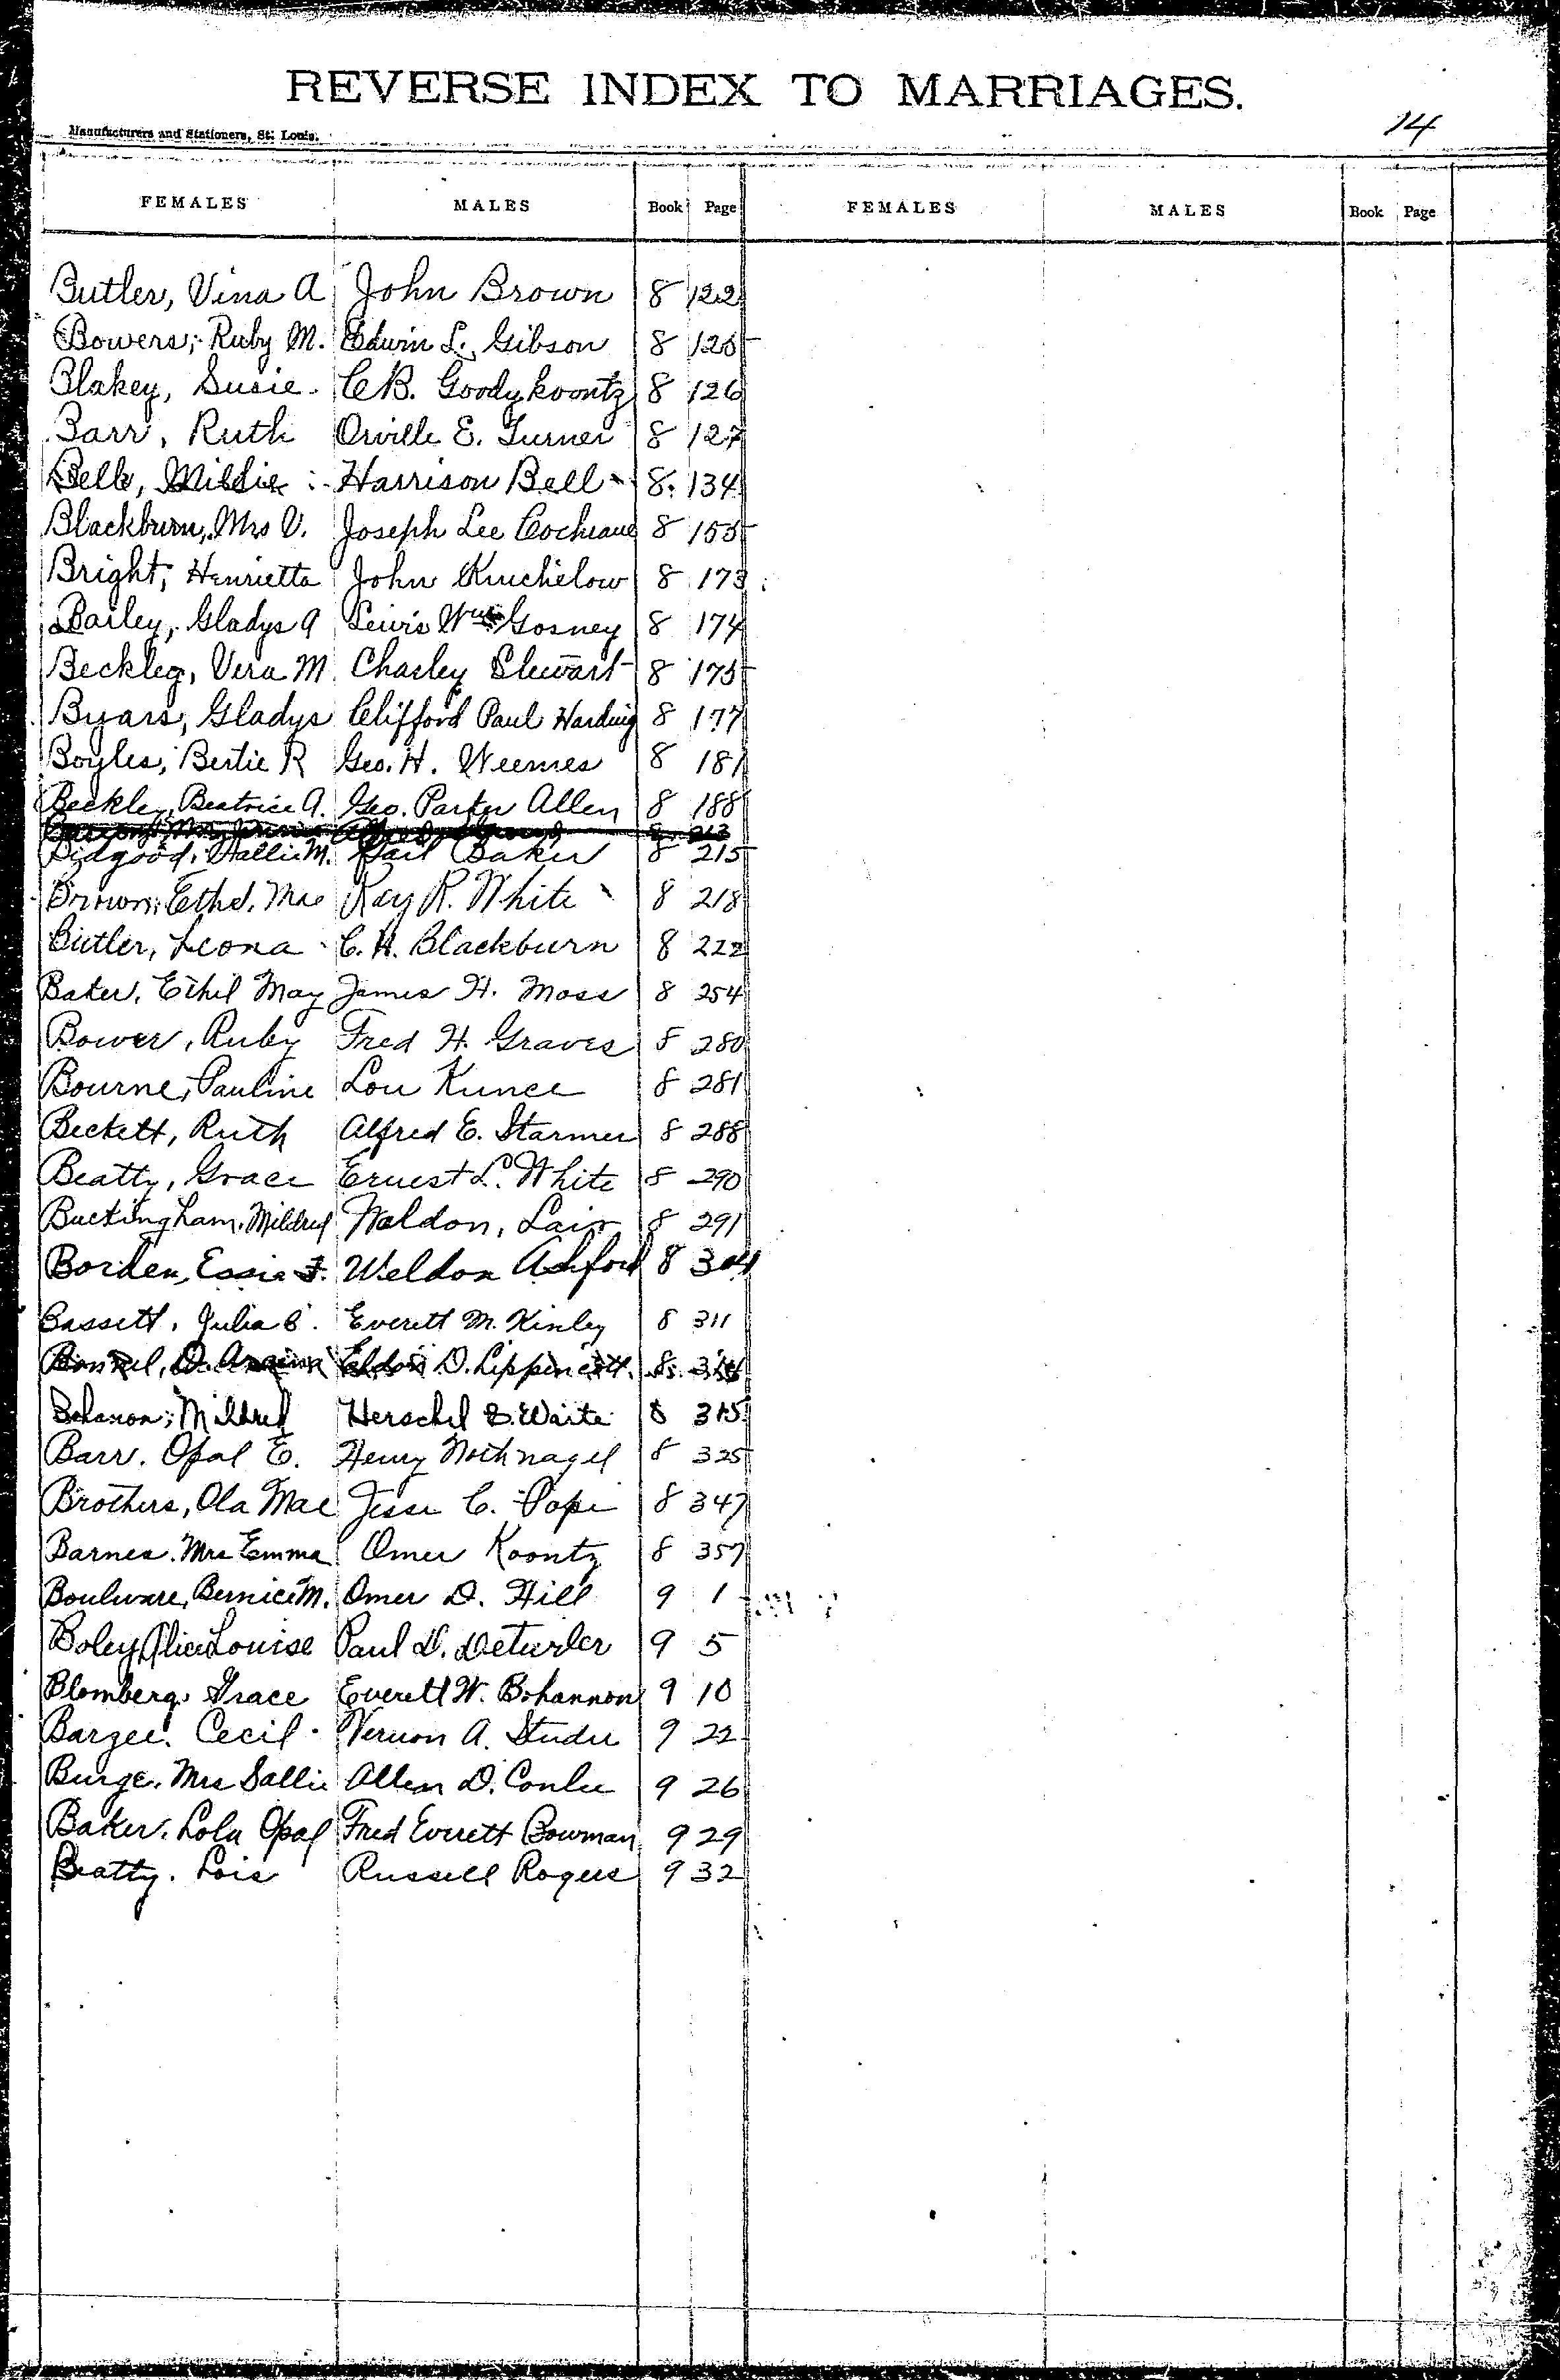 REVERSE INDEX TO MARRIAGES.
14
Manufacturers and Stationers, St. Louis.
FEMALES MALES Book Page FEMALES MALES Book Page
Butler, Vina A John Brown 8 122
Bowers, Ruby M. Edwin L. Gibson 8 125
Blakey, Susie C.B. Goodykoontz 8 126
Barr, Ruth Orville E. Turner 8 127
Bell, Millie Harrison Bell 8 134
Blackburn, Mrs V. Joseph Lee Cochrane 8 155
Bright, Henrietta John Kinchelow 8 173
Bailey, Gladys A Lewis Wm Gosney 8 174
Beckley, Vera M Charley Stewart 8 175
Byars, Gladys Clifford Paul Harding 8 177
Boyles, Bertie R Geo. H. Weemes 8 181
Beckley, Beatrice A. Geo. Parker Allen 8 188
8 213
Bidgood, Hallie M. Gail Baker 8 215
Brown, Ethel, Mae Ray R. White 8 218
Butler, Leona C. H. Blackburn 8 222
Baker, Ethel May James H. Moss 8 254
Bower, Ruby Fred H. Graves 8 280
Bourne, Pauline Lou Kunce 8 281
Beckett, Ruth Alfred E. Starmer 8 288
Beatty, Grace Ernest L. White 8 290
Buckingham, Mildred Waldon, Lair 8 291
Borden, Essie F. Weldon Ashford 8 304
Bassett, Julia C. Everett M. Kinley 8 311
Eldon D. Lippincott. 8
Bohanon, Mildred Herschel E. Waite 8 315
Barr. Opal E. Henry Nothnagel 8 325
Brothers, Ola Mae Jesse C. Pope 8 347
Barnes. Mrs Emma Omer Koontz 8 357
Boulware, Bernice M. Omer D. Hill 9 1
Boley, Alice Louise Paul D. Deturler 9 5
Blomberg, Grace Everett W. Bohannon 9 10
Barzee. Cecil Vernon A. Studer 9 22
Burge. Mrs Sallie Allen D. Conlee 9 26
Baker. Lola Opal Fred Everett Bowman 9 29
Beatty. Lois Russell Rogers 9 32